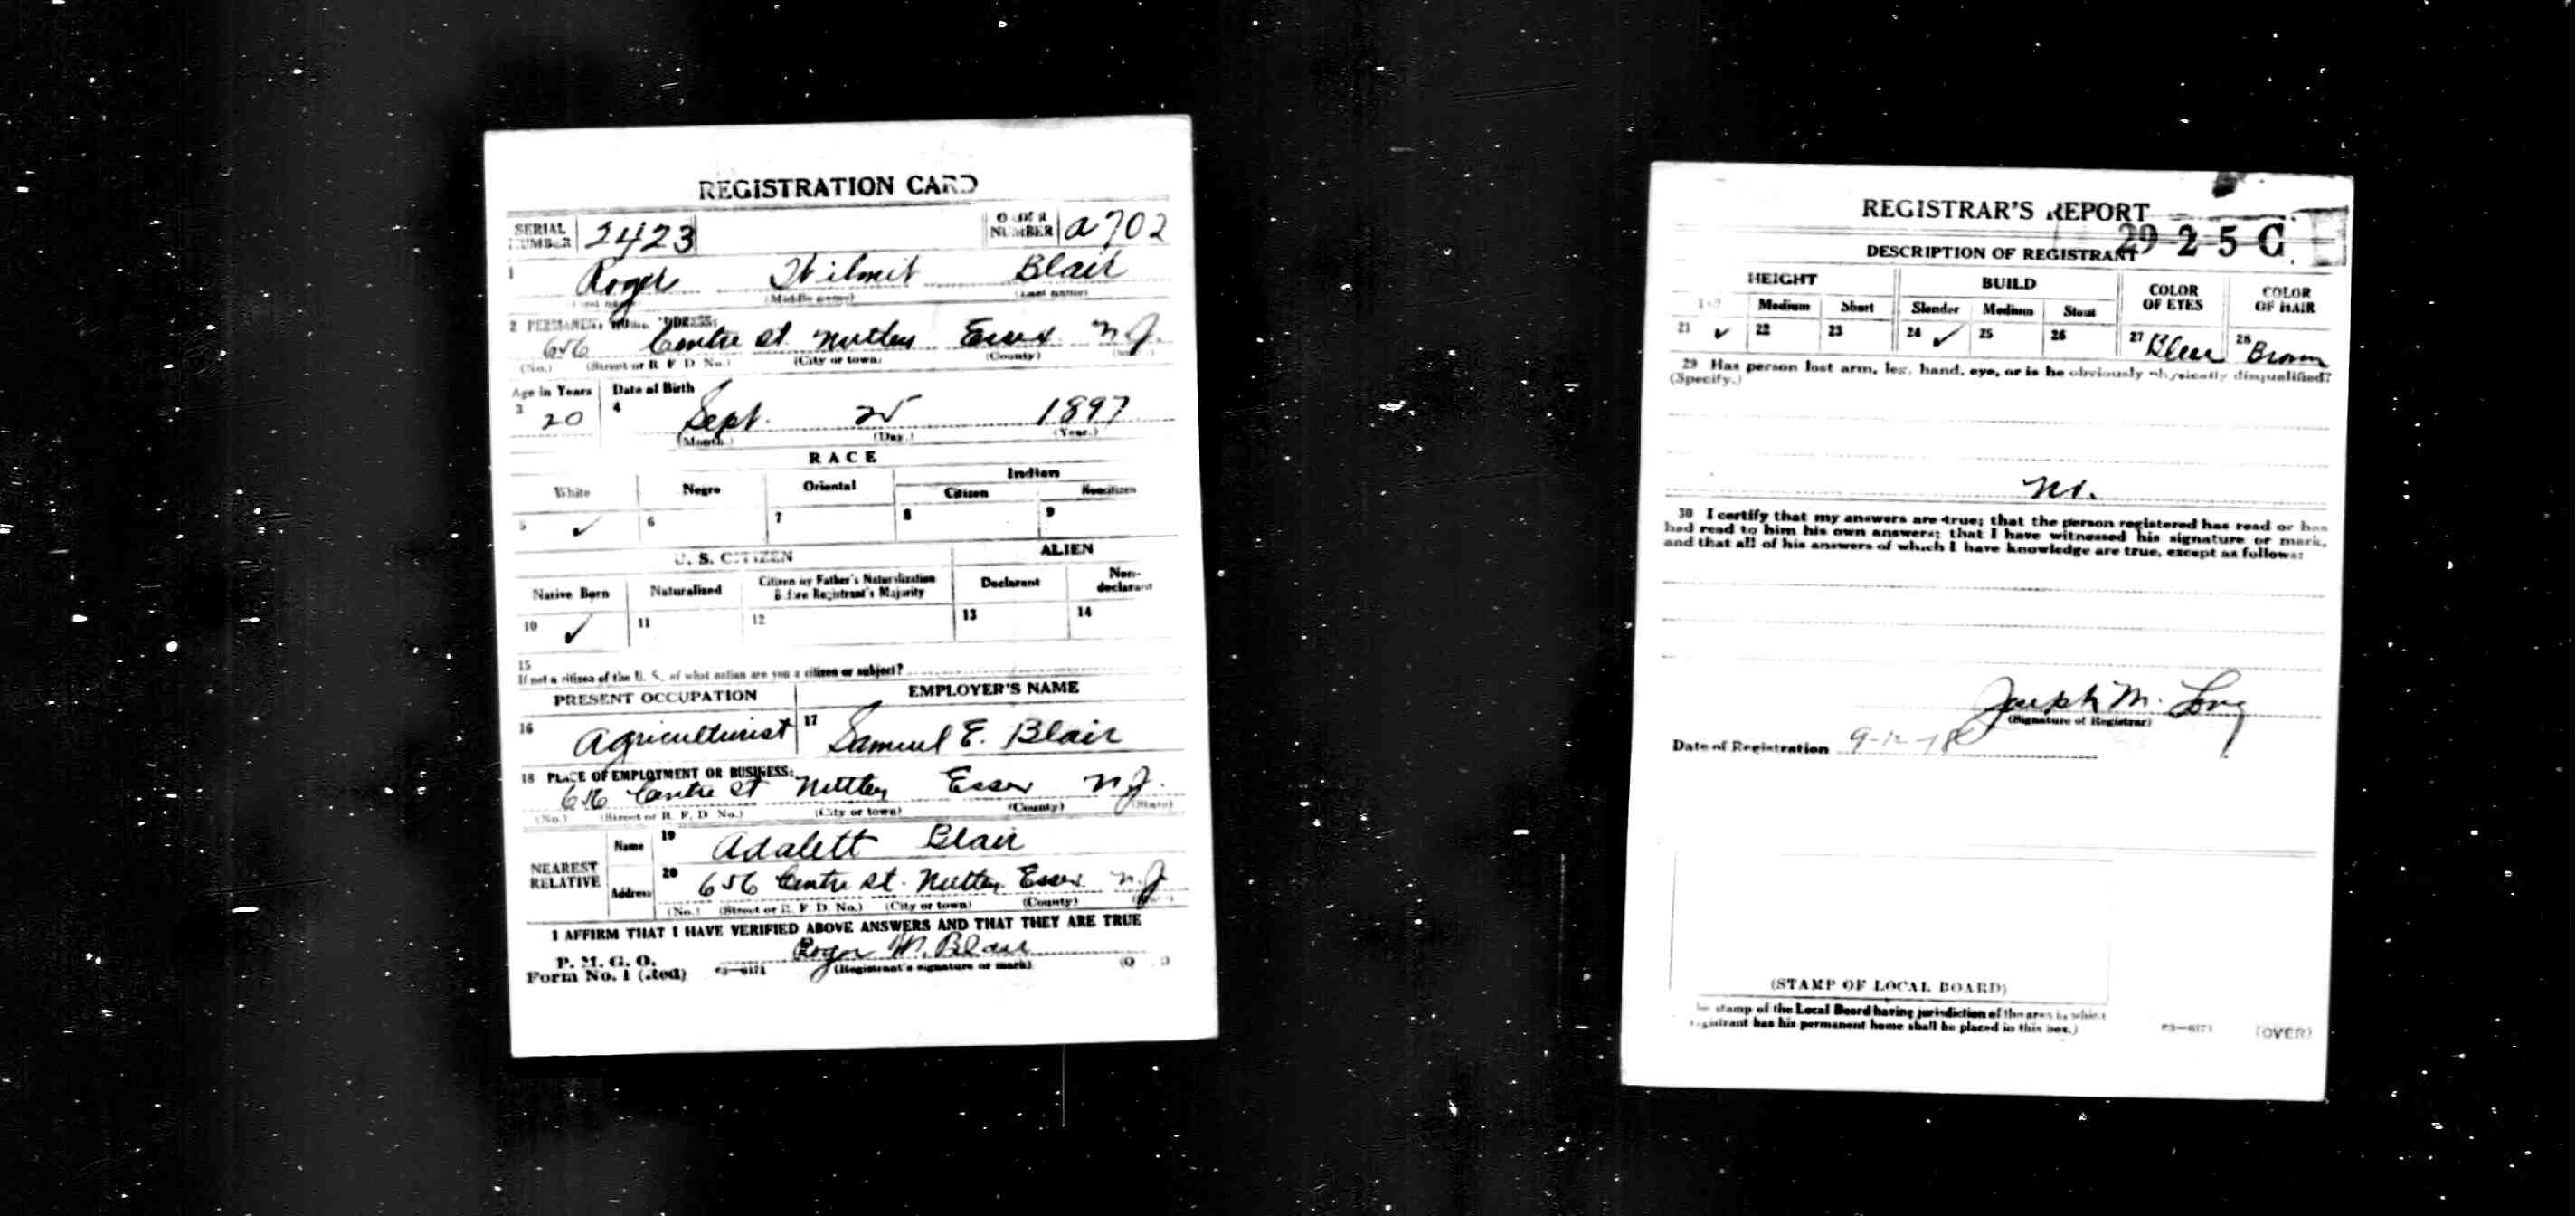 REGISTRATION CARD
SERIAL NUMBER 2423 ORDER NUMBER A702
1 Roger Wilmit Blair
(First name) (Middle name) (Last name)
2 PERMANENT HOME ADDRESS:
656 Centre St. Nutley Essex N.J.
(No.) (Street or R. F. D. No.) (City or town) (County) (State)
Age in Years Date of Birth
3 20 4 Sept. 25 1897
(Month.) (Day.) (Year.)
RACE
White Negro Oriental Indian
Citizen Noncitizen
5 ✓ 6 7 8 9
U. S. CITIZEN ALIEN
Native Born Naturalized Citizen by Father's Naturalization Before Registrant's Majority Declarant Non-declarant
10 ✓ 11 12 13 14
15
If not a citizen of the U. S., of what nation are you a citizen or subject?
PRESENT OCCUPATION EMPLOYER'S NAME
16 Agriculturist 17 Samuel E. Blair
18 PLACE OF EMPLOYMENT OR BUSINESS:
656 Centre St Nutley Essex N.J.
(No.) (Street or R. F. D. No.) (City or town) (County) (State)
NEAREST RELATIVE Name 19 Adalett Blair
Address 20 656 Centre St. Nutley Essex N.J.
(No.) (Street or R. F. D. No.) (City or town) (County)
I AFFIRM THAT I HAVE VERIFIED ABOVE ANSWERS AND THAT THEY ARE TRUE
P. M. G. O.
Form No. 1 (Red) 03—6171 Roger W. Blair
(Registrant's signature or mark) (OVER)
REGISTRAR'S REPORT
29 2 5 C
DESCRIPTION OF REGISTRANT
HEIGHT BUILD COLOR OF EYES COLOR OF HAIR
Tall Medium Short Slender Medium Stout
21 ✓ 22 23 24 ✓ 25 26 27 Blue 28 Brown
29 Has person lost arm, leg, hand, eye, or is he obviously physically disqualified?
(Specify.)
No.
30 I certify that my answers are true; that the person registered has read or has
had read to him his own answers; that I have witnessed his signature or mark,
and that all of his answers of which I have knowledge are true, except as follows:
Joseph M. Long
(Signature of Registrar)
Date of Registration 9-12-18
(STAMP OF LOCAL BOARD)
The stamp of the Local Board having jurisdiction of the area in which
registrant has his permanent home shall be placed in this box.)
03—6171 (OVER)